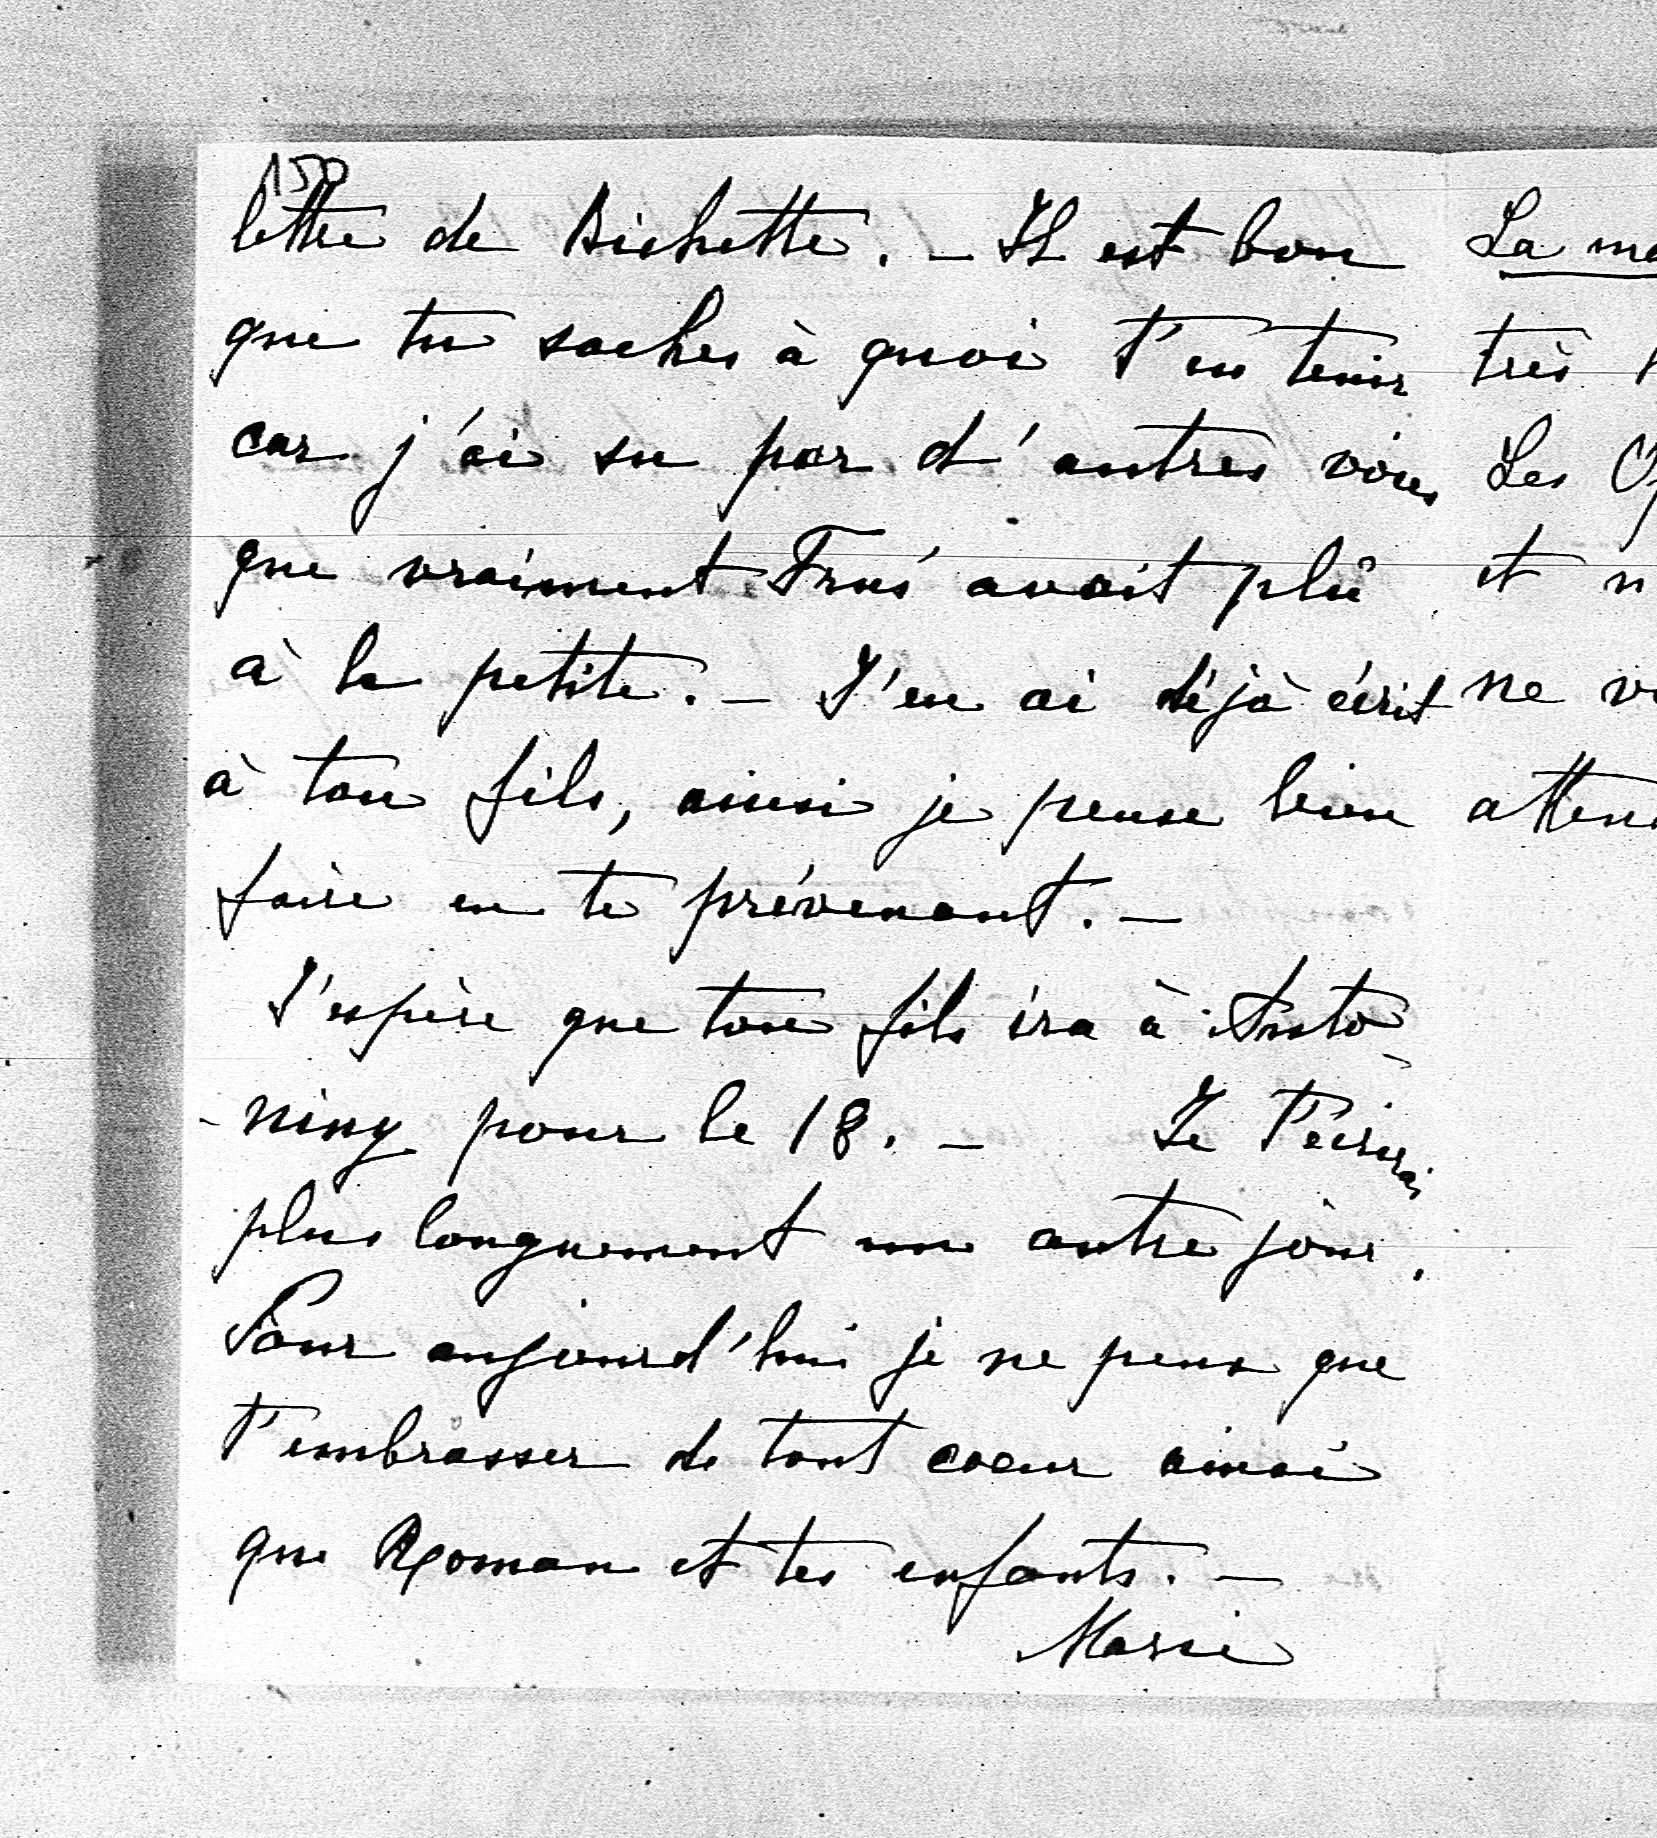 150
lettre de Bichette. – Il est bon
que tu saches à quoi t'en tenir
car j'ai su par d'autres voies
que vraiment avait plû
à la petite. – J'en ai déjà écrit
à ton fils, ainsi je pense bien
faire en te prévenant. –
J'espère que ton fils ira à Anto-
-niny pour le 18. – Je t'écrirai
plus longuement un autre jour.
Pour aujourd'hui je ne peux que
t'embrasser de tout coeur ainsi
que Roman et tes enfants. –
Marie
La
très
Les
et
ne